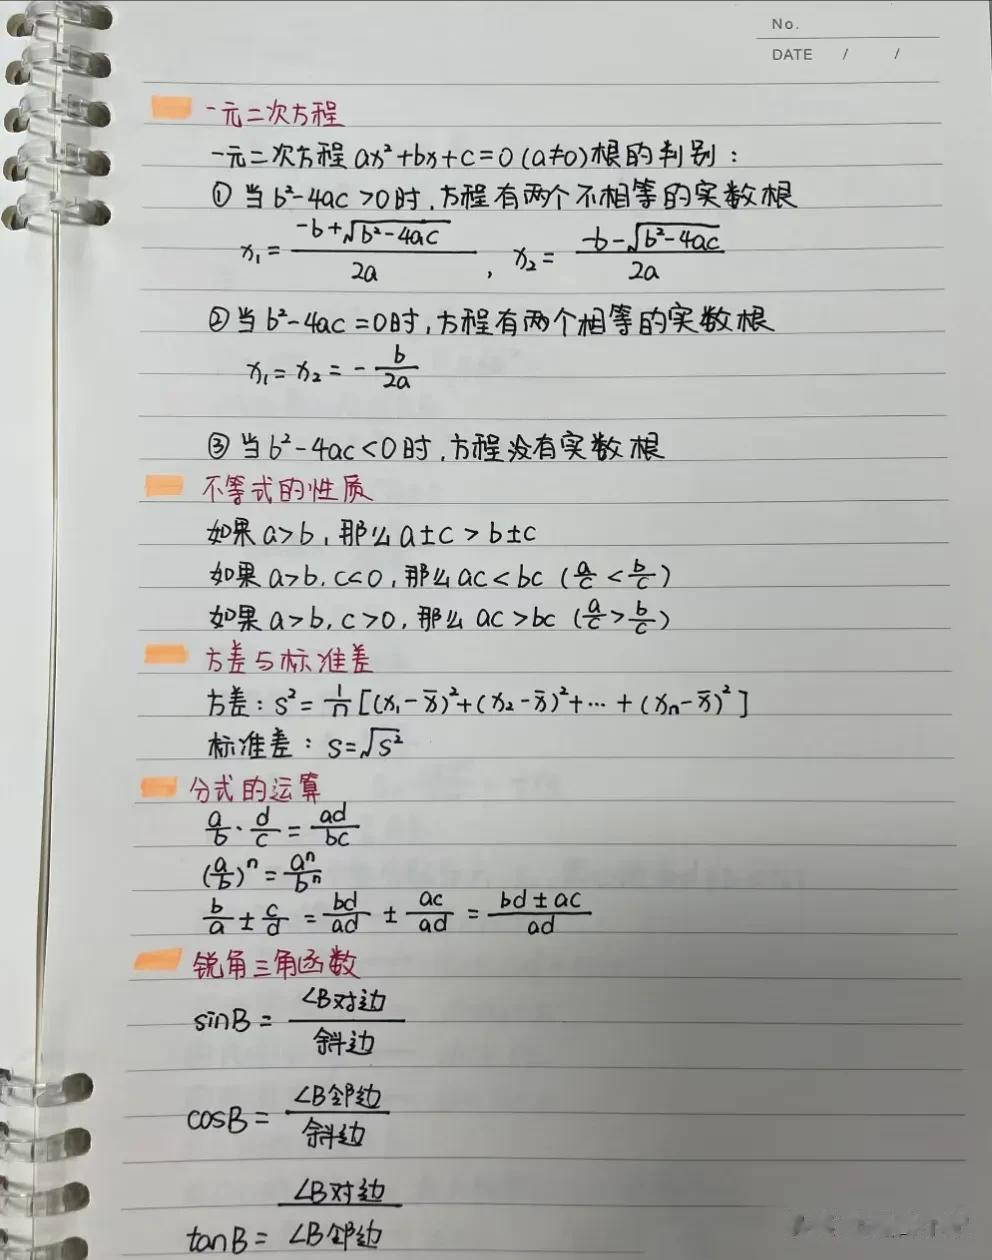 No.
DATE / /
一元二次方程
一元二次方程 ax²+bx+c=0 (a≠0) 根的判别：
① 当 b²-4ac>0时，方程有两个不相等的实数根
x₁= (-b+√(b²-4ac))/2a , x₂= (-b-√(b²-4ac))/2a
② 当 b²-4ac=0时，方程有两个相等的实数根
x₁=x₂=-b/2a
③ 当 b²-4ac<0时，方程没有实数根
不等式的性质
如果 a>b，那么 a±c > b±c
如果 a>b, c<0，那么 ac<bc (a/c < b/c)
如果 a>b, c>0，那么 ac>bc (a/c > b/c)
方差与标准差
方差：S²=1/n[(x₁-x̄)²+(x₂-x̄)²+…+(xₙ-x̄)²]
标准差：S=√S²
分式的运算
a/b · d/c = ad/bc
(a/b)ⁿ = aⁿ/bⁿ
b/a ± c/d = bd/ad ± ac/ad = (bd±ac)/ad
锐角三角函数
sinB = ∠B对边/斜边
cosB = ∠B邻边/斜边
tanB = ∠B对边/∠B邻边